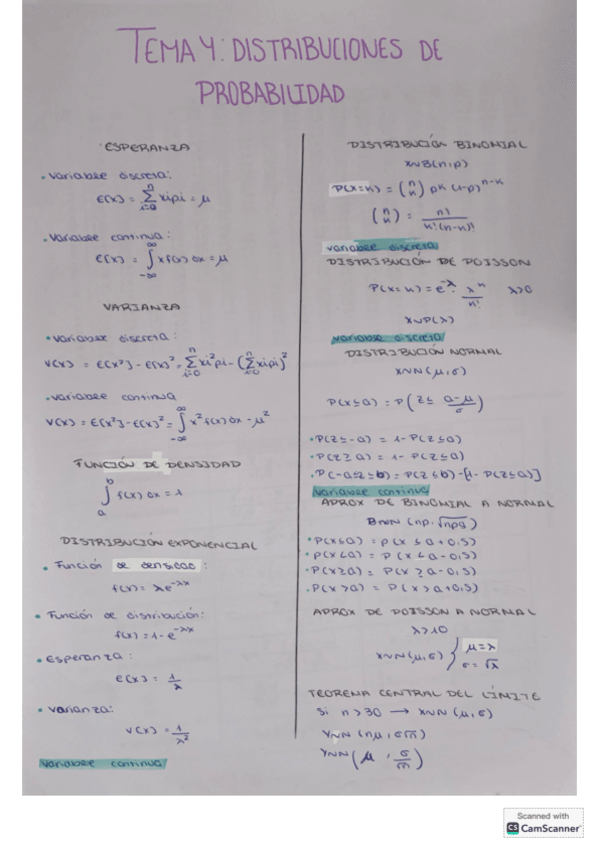 TEMA 4: DISTRIBUCIONES DE
PROBABILIDAD
ESPERANZA
• Variable discreta:
E(x) = ∑ⁿᵢ₌₀ xipi = μ
• Variable continua:
E(x) = ∫ xf(x)dx = μ
∞
-∞
VARIANZA
• Variable discreta:
V(x) = E(x²) - E(x)² = ∑ⁿᵢ₌₀ xi²pi - (∑ⁿᵢ₌₀ xipi)²
• Variable continua
V(x) = E(x²) - E(x)² = ∫ x² f(x)dx - μ²
∞
-∞
FUNCIÓN DE DENSIDAD
b
∫ f(x)dx = 1
a
DISTRIBUCIÓN EXPONENCIAL
• Función de densidad:
f(x) = λe^-λx
• Función de distribución:
f(x) = 1 - e^-λx
• Esperanza:
E(x) = 1/λ
• Varianza:
V(x) = 1/λ²
Variable continua
DISTRIBUCIÓN BINOMIAL
X~B(n,p)
P(x=k) = (n k) pk (1-p)^n-k
(n k) = n!/k!(n-k)!
variable discreta
DISTRIBUCIÓN DE POISSON
P(x=k) = e^-λ · λ^k/k! λ>0
X~P(λ)
variable discreta
DISTRIBUCIÓN NORMAL
X~N(μ,σ)
P(x≤a) = P(Z≤ a-μ/σ)
• P(Z≤-a) = 1-P(Z≤a)
• P(Z≥a) = 1- P(Z≤a)
• P(-a≤Z≤b) = P(Z≤b) - [1- P(Z≤a)]
Variable continua
APROX DE BINOMIAL A NORMAL
B~N (np, √npq)
• P(x≤a) = P(x ≤ a+0,5)
• P(x<a) = P(x ≤ a-0,5)
• P(x≥a) = P(x ≥ a-0,5)
• P(x>a) = P(x > a+0,5)
APROX DE POISSON A NORMAL
λ>10
X~N(μ,σ) { μ=λ
σ=√λ
TEOREMA CENTRAL DEL LÍMITE
Si n>30 → X~N(μ,σ)
Y~N (nμ, σ√n)
Y~N (μ, σ/√n)
Scanned with
CS CamScanner